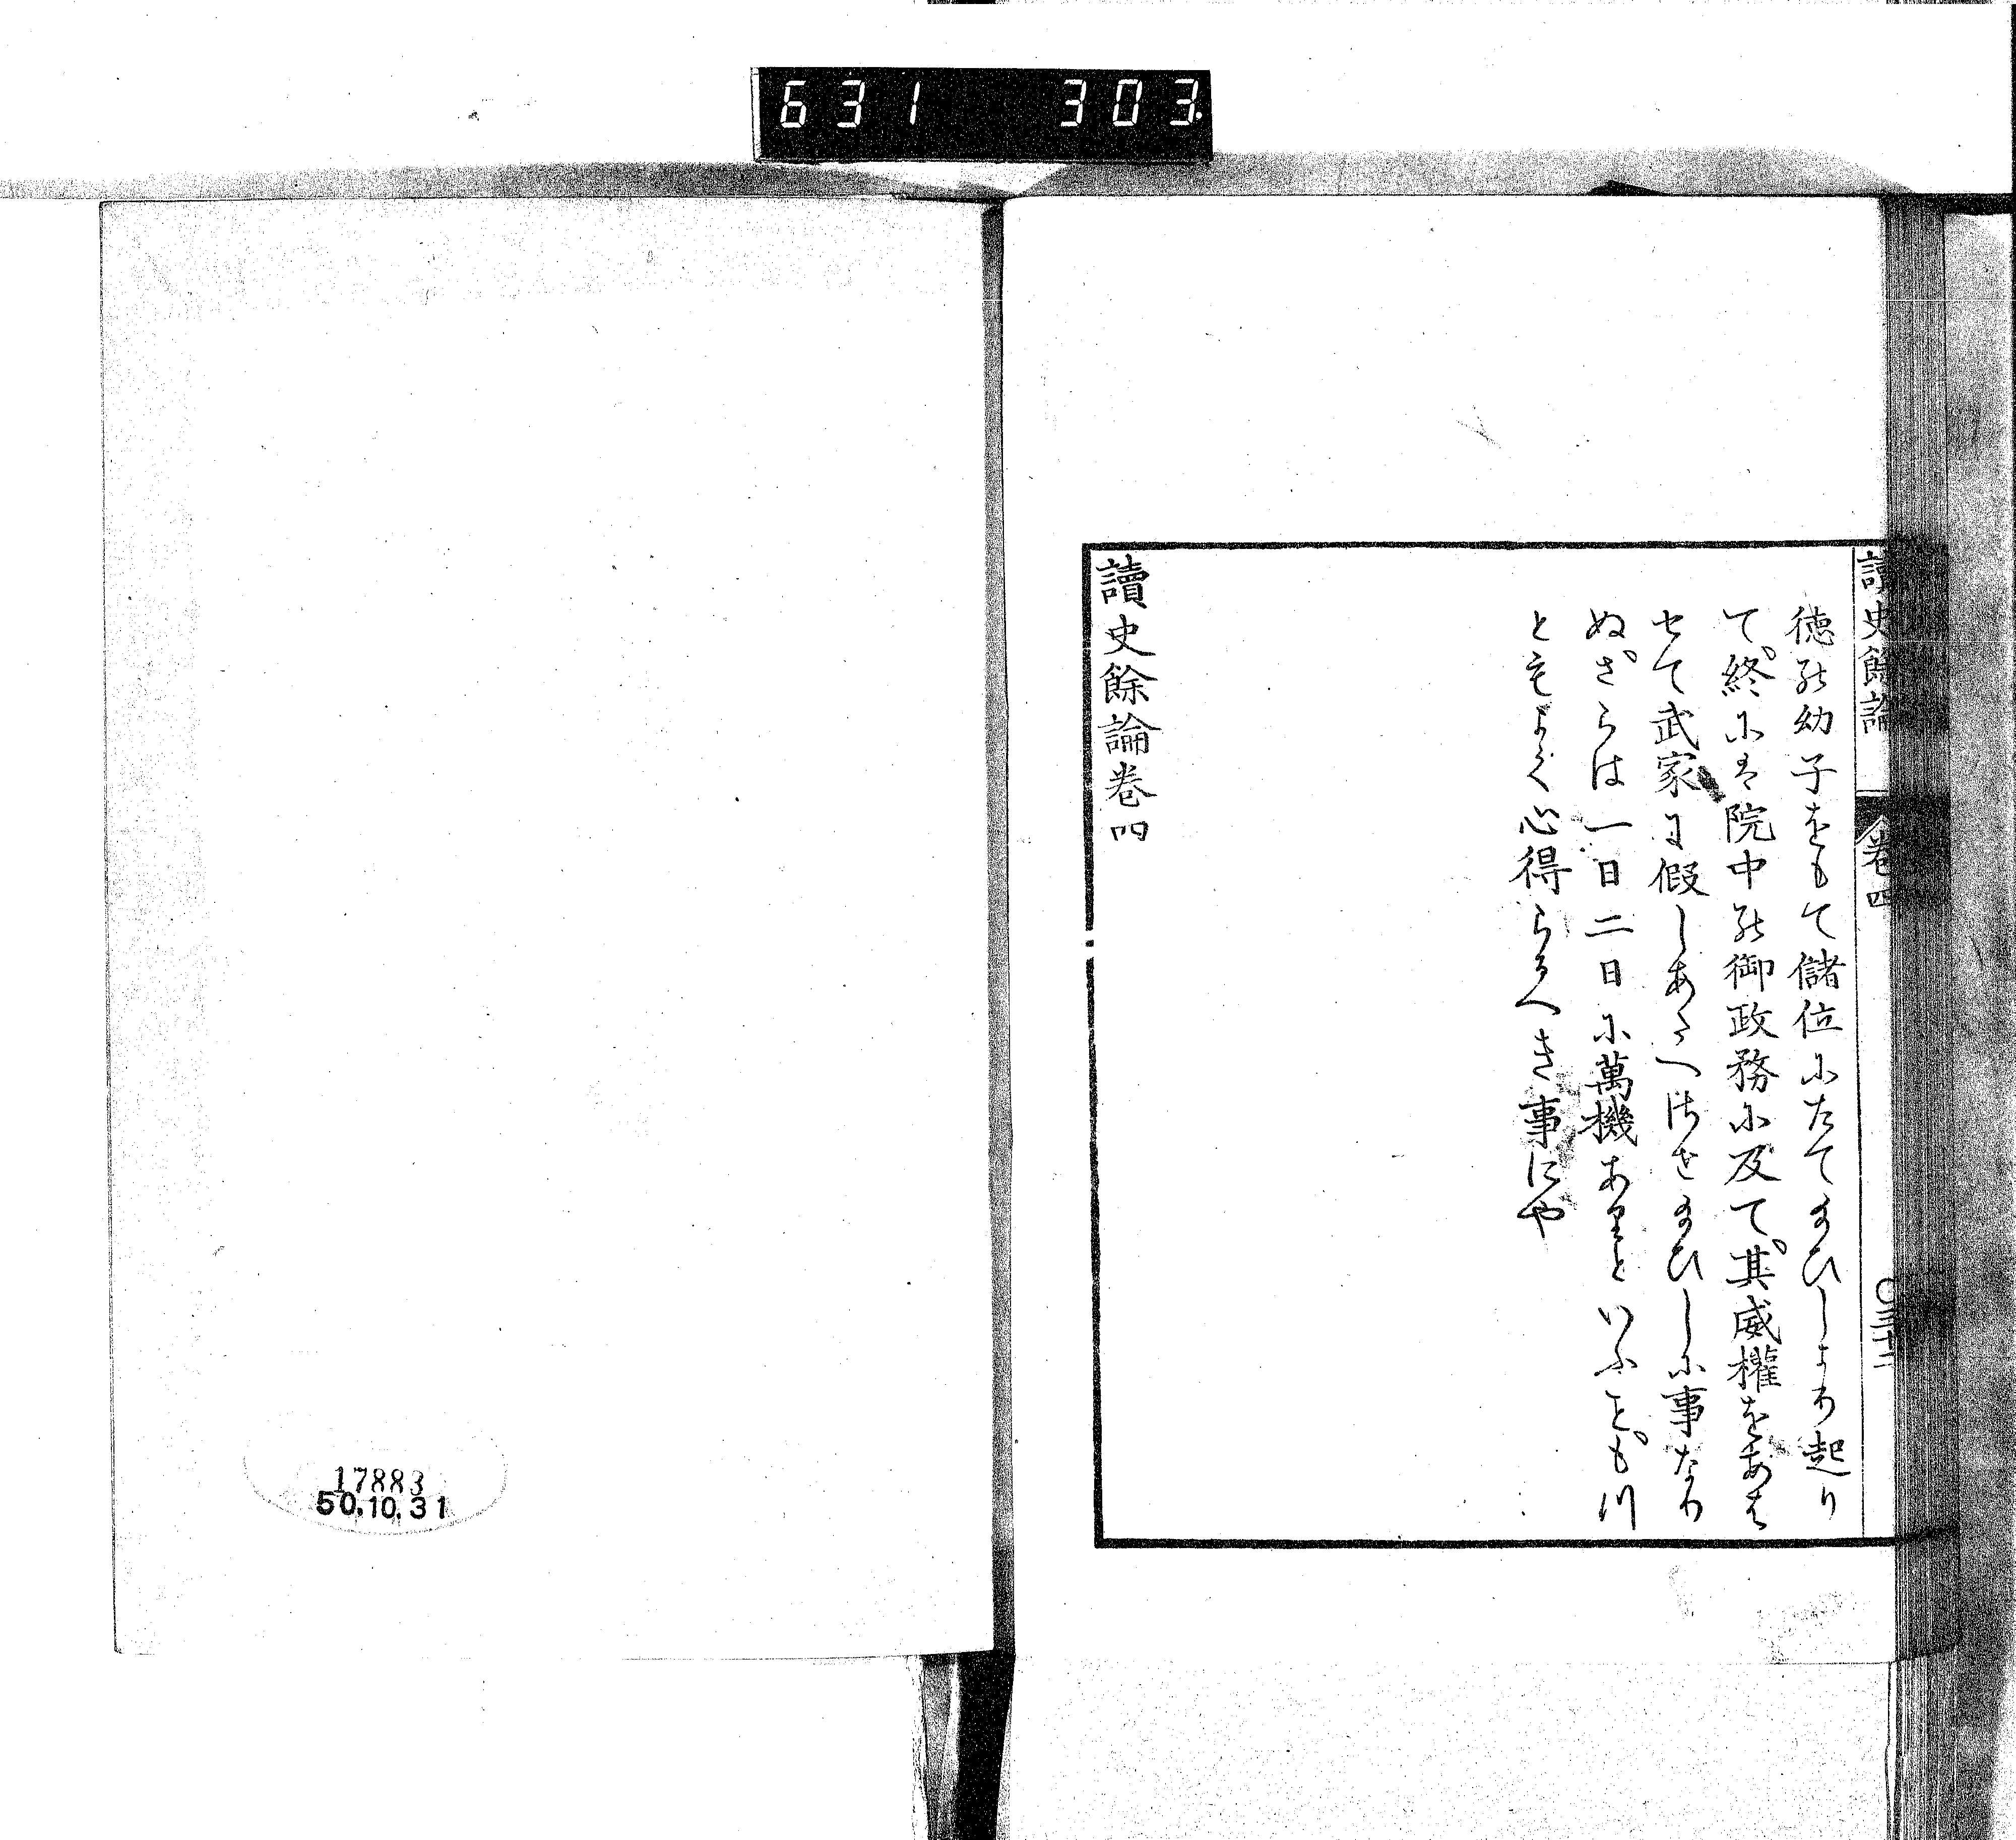 631 303
讀史餘論 卷四 〇三十二
徳の幼子をもて儲位にたて給ひしより起り
て、終には院中の御政務に及て、其威權をあは
せて武家に假しあたへ給はせ給ひしに事なり
ぬ、さらは一日二日に萬機ありといふとも、川
ともよく心得らるへき事にや
讀史餘論卷四
17883
50.10.31